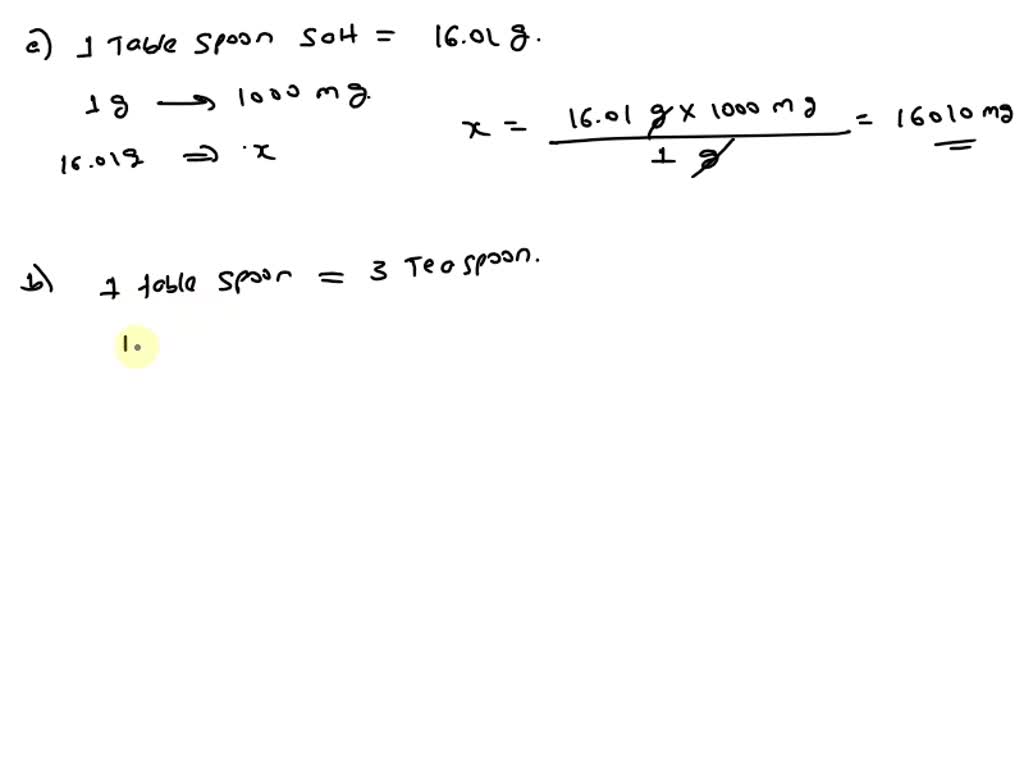 a) 1 Table Spoon SOH = 16.01 g.
1 g → 1000 mg.
16.01g ⇒ x
x = 16.01 g × 1000 mg / 1 g = 16010 mg
b) 1 table spoon = 3 Teaspoon.
1.